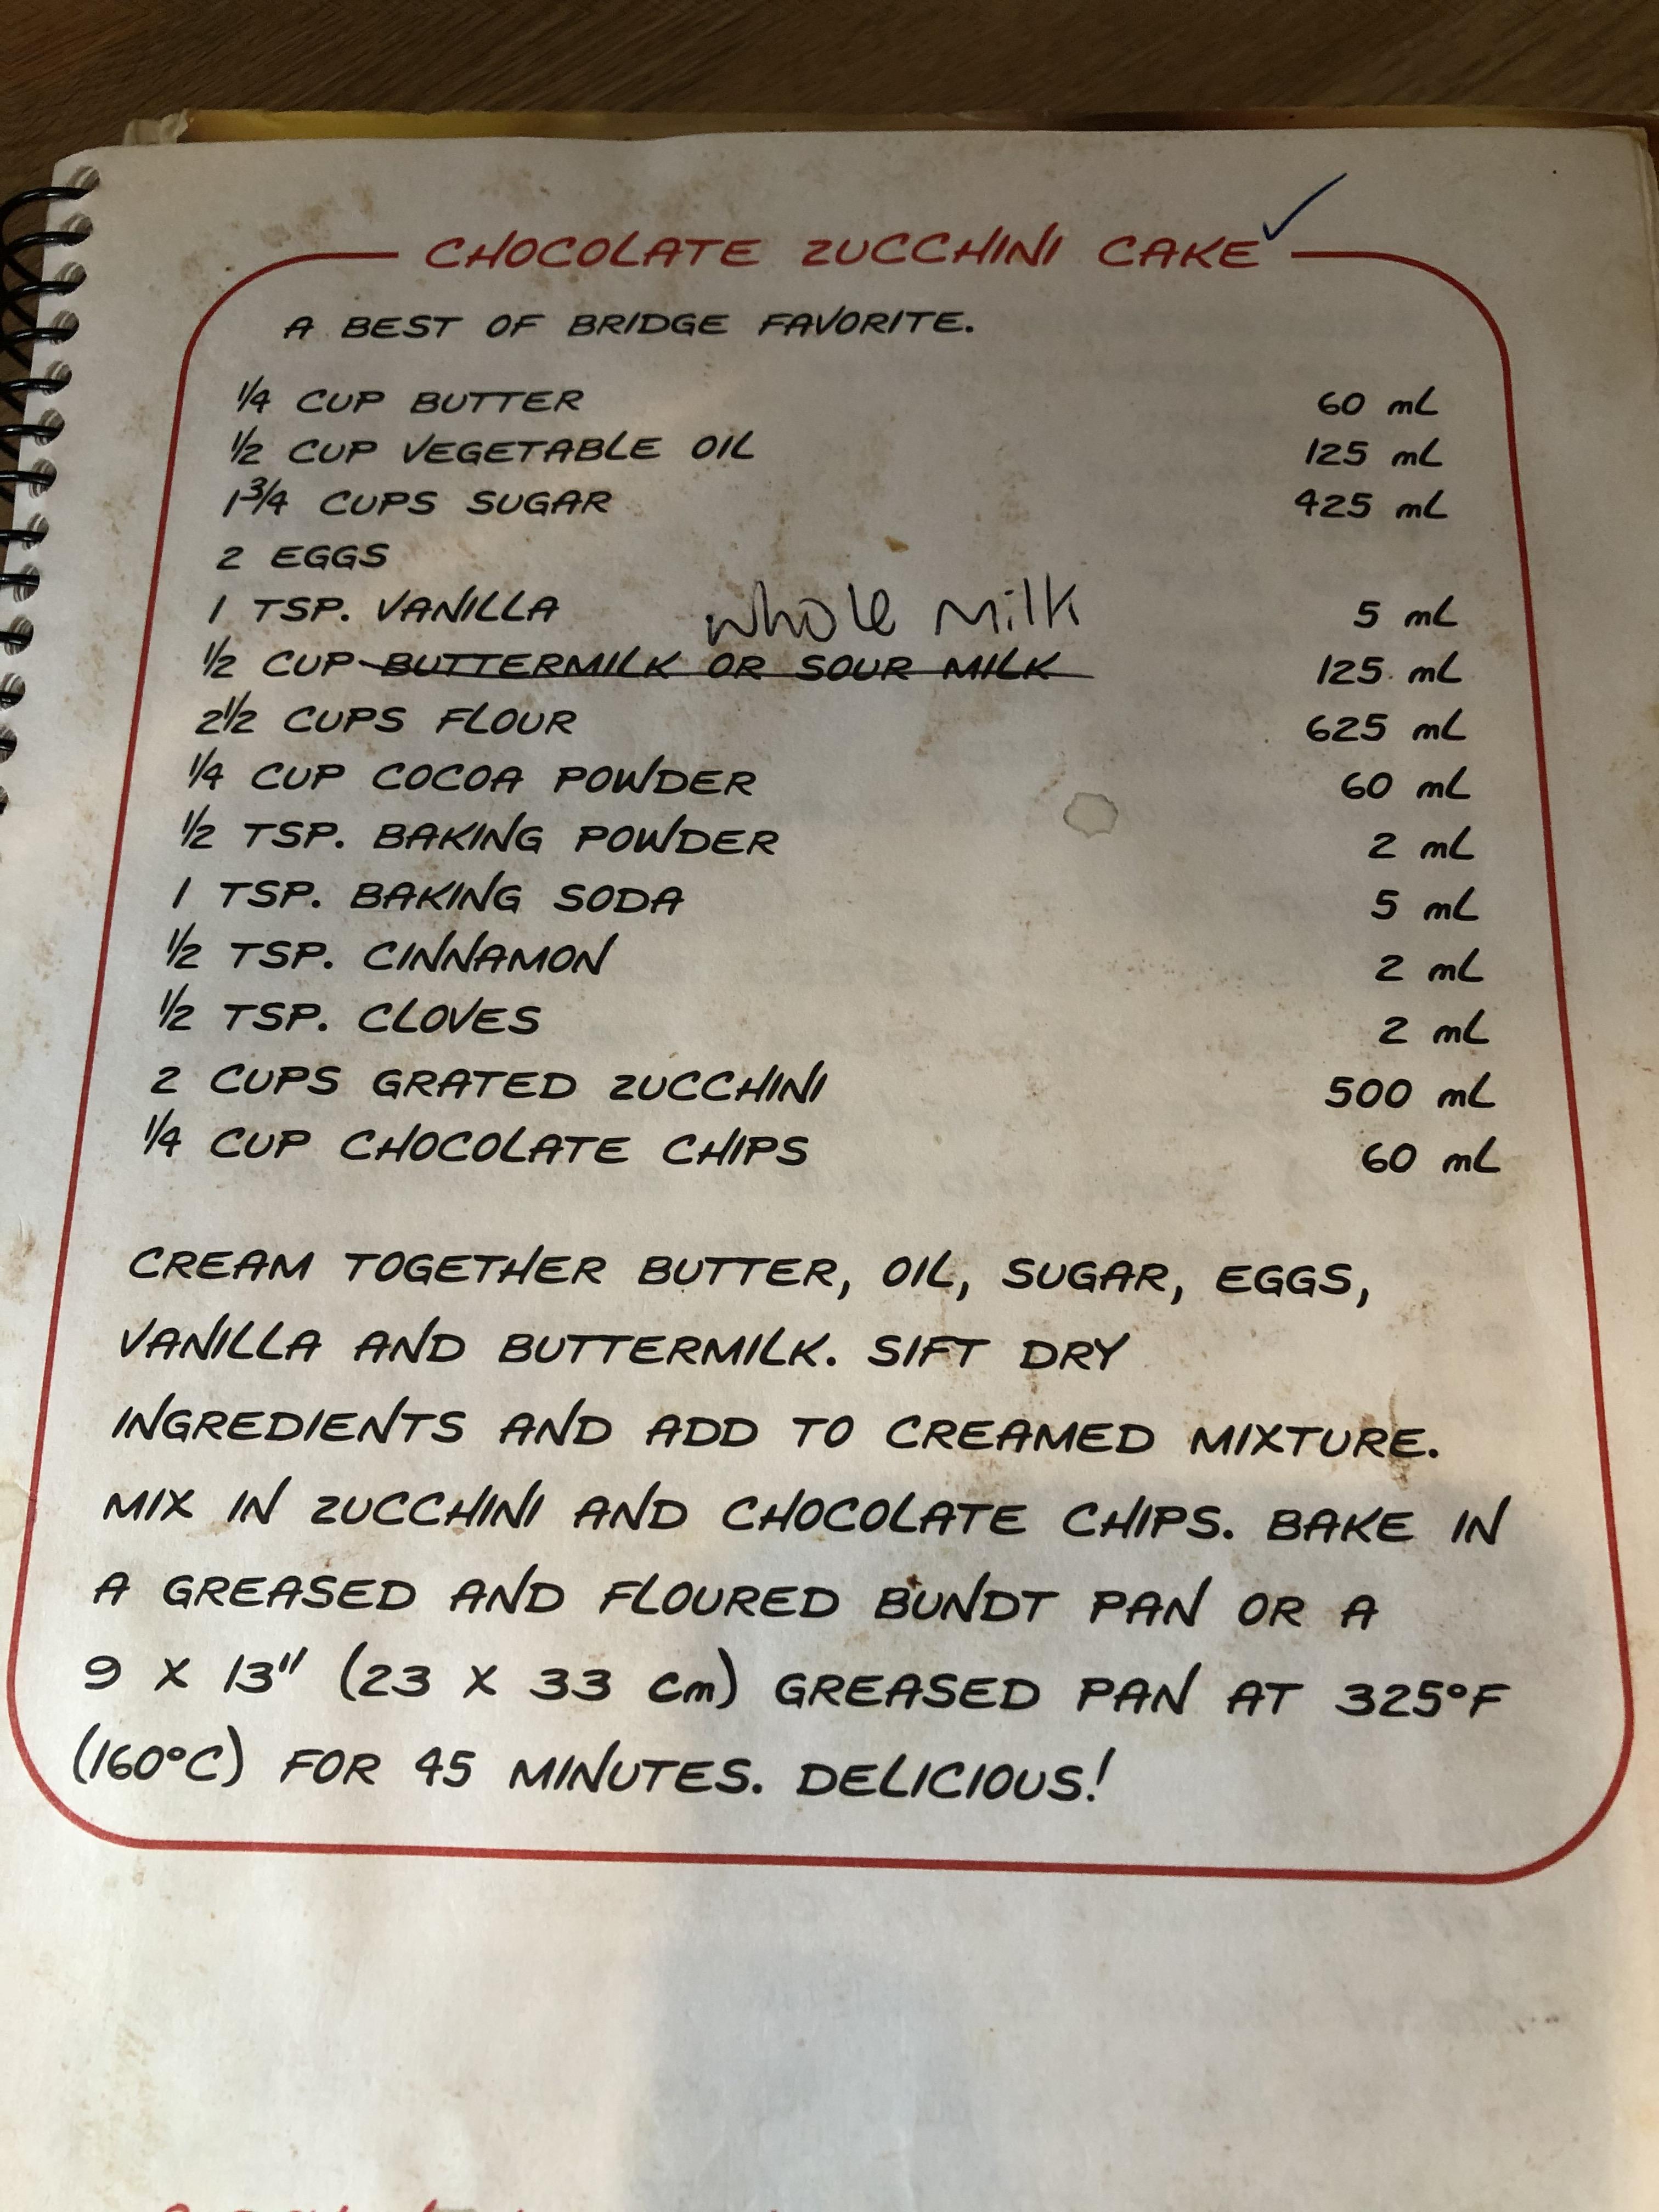 CHOCOLATE ZUCCHINI CAKE
A BEST OF BRIDGE FAVORITE.
1/4 CUP BUTTER 60 mL
1/2 CUP VEGETABLE OIL 125 mL
1 3/4 CUPS SUGAR 425 mL
2 EGGS
1 TSP. VANILLA 5 mL
whole milk
1/2 CUP BUTTERMILK OR SOUR MILK 125 mL
2 1/2 CUPS FLOUR 625 mL
1/4 CUP COCOA POWDER 60 mL
1/2 TSP. BAKING POWDER 2 mL
1 TSP. BAKING SODA 5 mL
1/2 TSP. CINNAMON 2 mL
1/2 TSP. CLOVES 2 mL
2 CUPS GRATED ZUCCHINI 500 mL
1/4 CUP CHOCOLATE CHIPS 60 mL
CREAM TOGETHER BUTTER, OIL, SUGAR, EGGS,
VANILLA AND BUTTERMILK. SIFT DRY
INGREDIENTS AND ADD TO CREAMED MIXTURE.
MIX IN ZUCCHINI AND CHOCOLATE CHIPS. BAKE IN
A GREASED AND FLOURED BUNDT PAN OR A
9 X 13" (23 X 33 cm) GREASED PAN AT 325°F
(160°C) FOR 45 MINUTES. DELICIOUS!